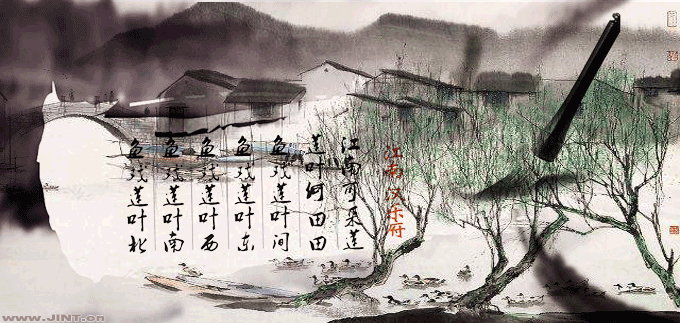 江南 汉乐府
江南可采莲
莲叶何田田
鱼戏莲叶间
鱼戏莲叶东
鱼戏莲叶西
鱼戏莲叶南
鱼戏莲叶北
www.JINT.cn